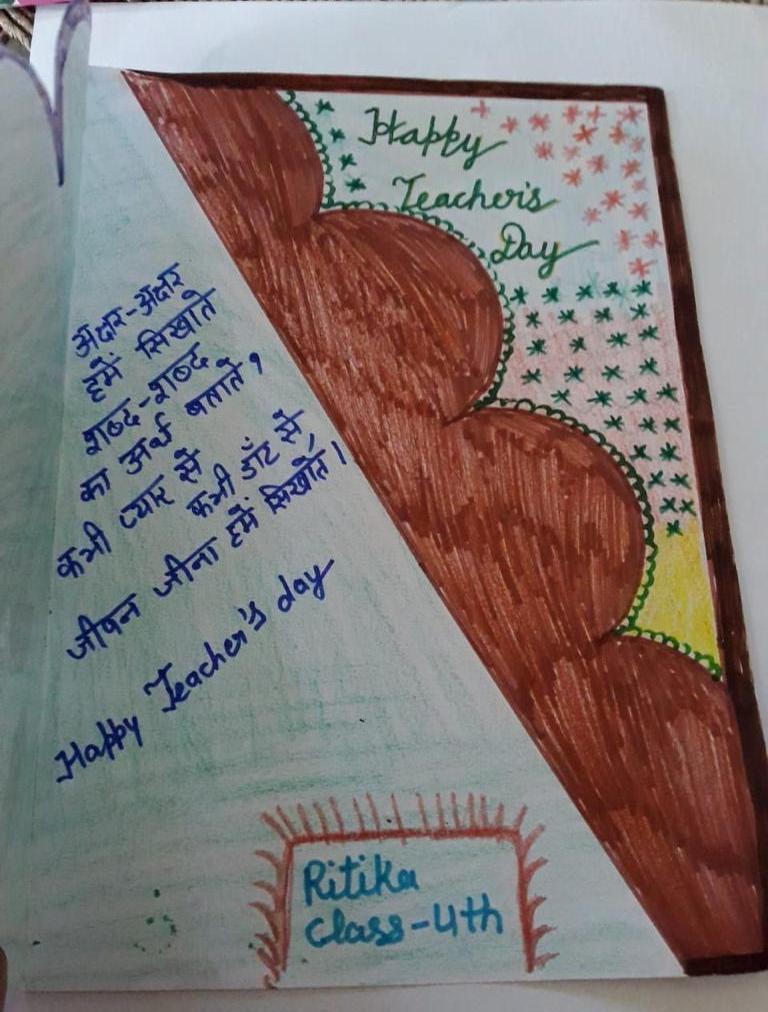 Happy
Teacher's
Day
अक्षर-अक्षर
हमें सिखाते
शब्द-शब्द
का अर्थ बताते,
कभी प्यार से
कभी डाँट से,
जीवन जीना हमें सिखाते।
Happy Teacher's day
Ritika
Class-4th